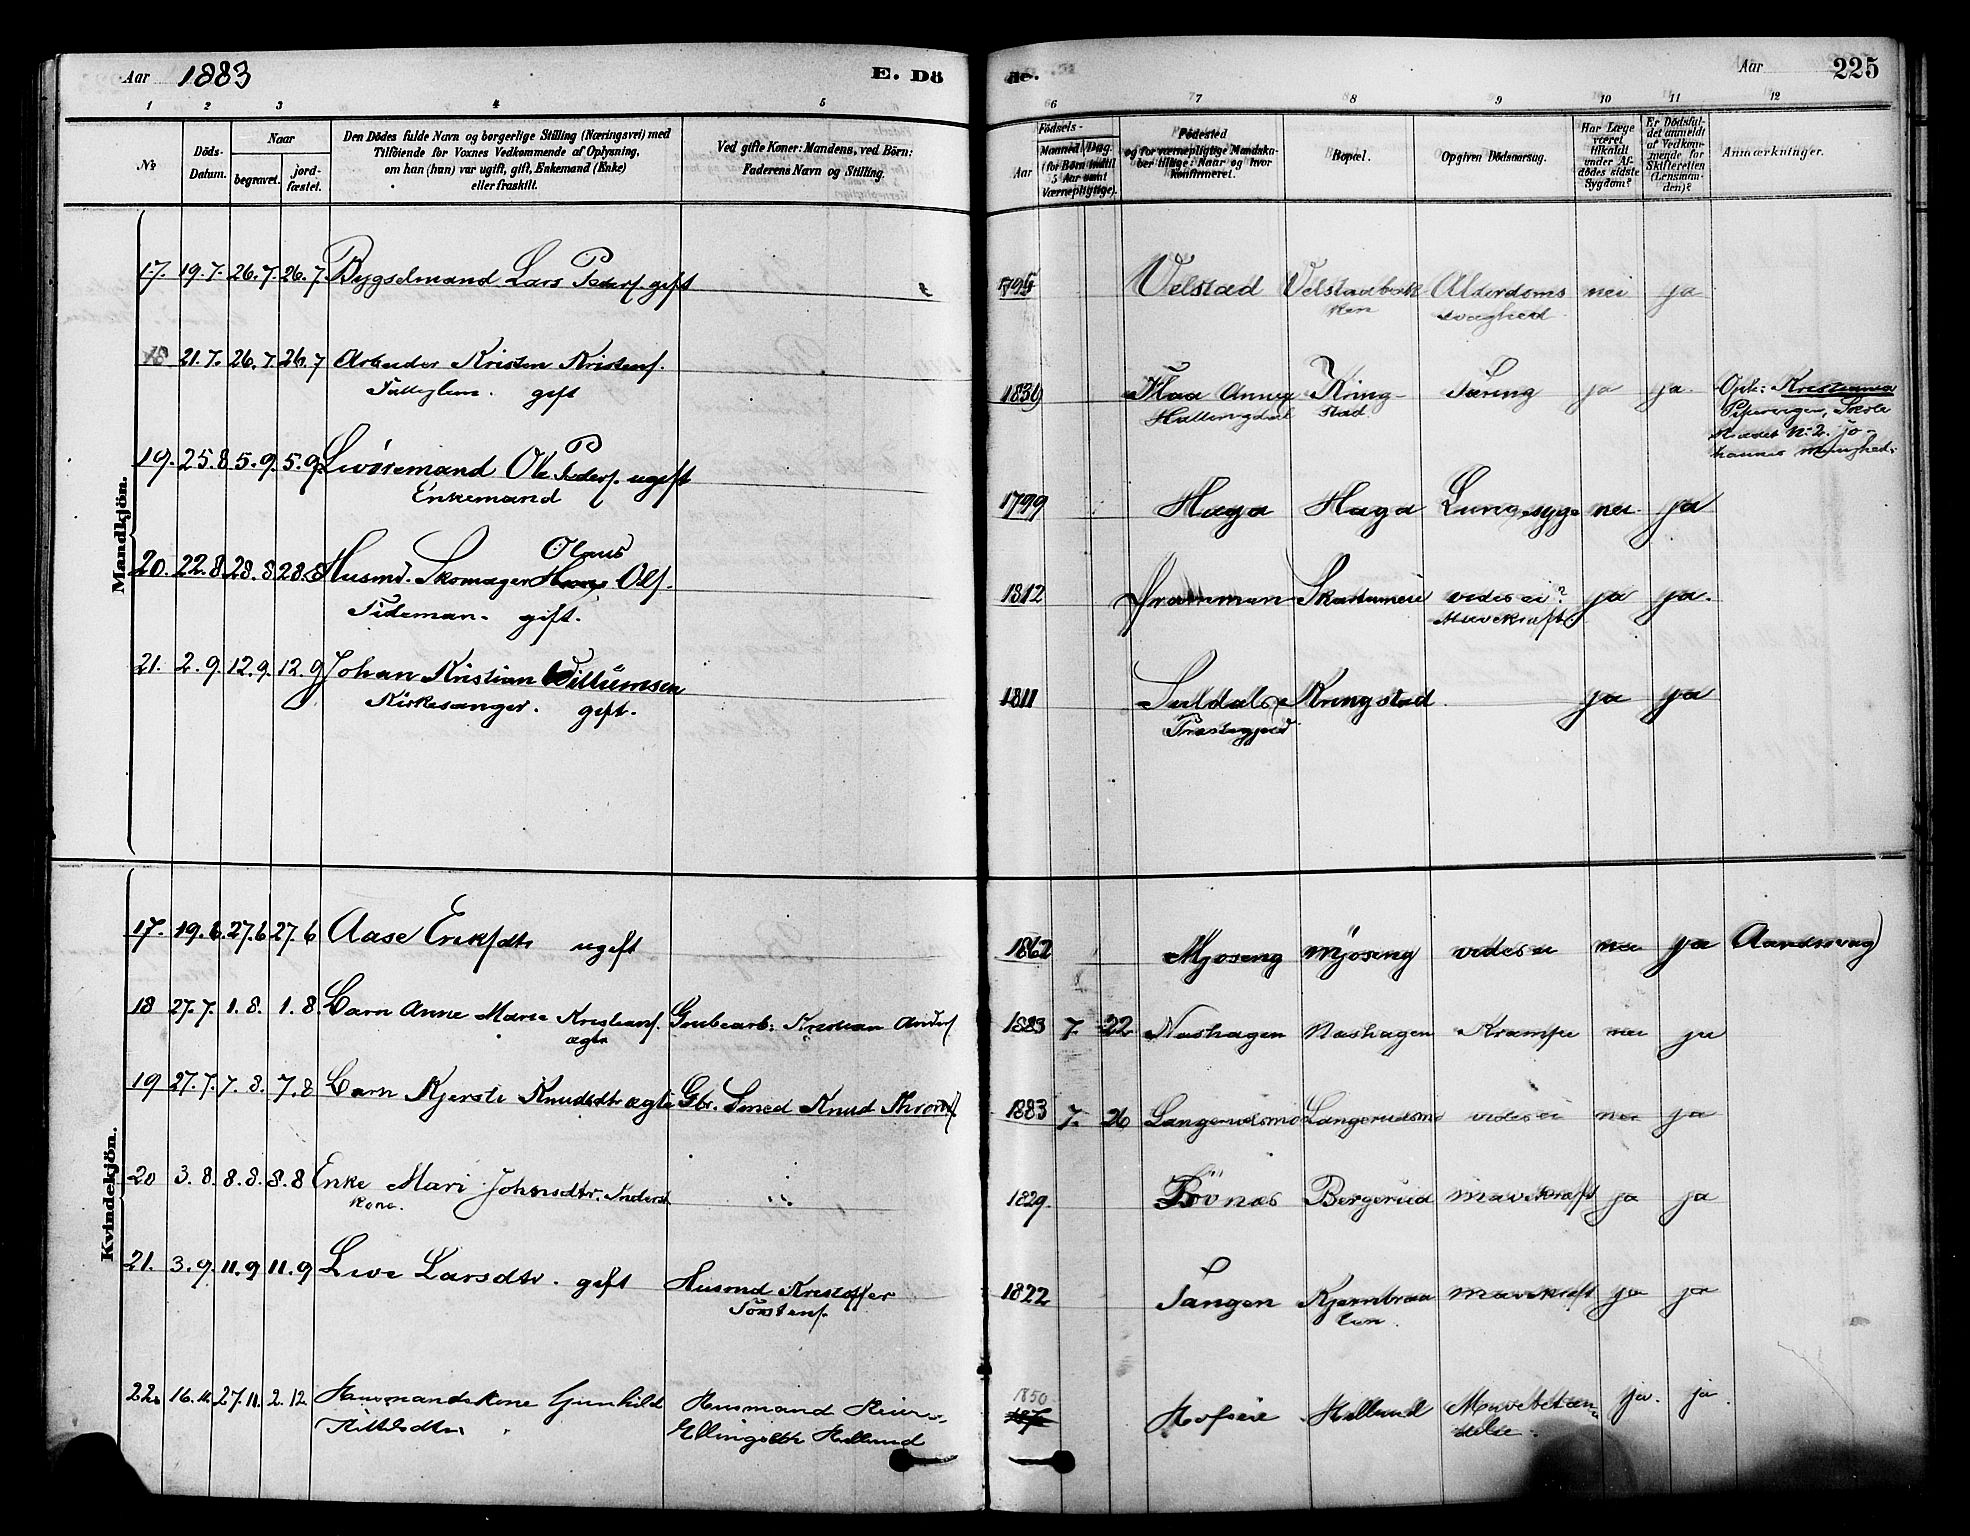 Aar 1883
E. Dö
de.
Aar 225
1 2 3 4 5
6 7 8 9 10 11 12
No
Döds-Datum.
Naar
begravet.
jord-fæstet.
Den Dödes fulde Navn og borgerlige Stilling (Næringsvei) med
Tilföiende for Voxnes Vedkommende af Oplysning,
om han (hun) var ugift, gift, Enkemand (Enke)
eller fraskilt.
Ved gifte Koner: Mandens, ved Börn:
Faderens Navn og Stilling.
Födsels-
Aar
Maaned Dag
(for Börn indtil
5 Aar samt
Værnepligtige).
Födested
og for værnepligtige Mandskaber tillige: Naar og hvor
Konfirmeret.
Bopæl.
Opgiven Dödsaarsag.
Har Læge
været
tilkaldt
under Afdödes sidste
Sygdom?
Er Dödsfaldet anmeldt
af Vedkommende for
Skifteretten
(Lensmanden)?
Anmærkninger.
Mandkjön.
17. 19.7. 26.7. 26.7. Bygselmand Lars Peders. gift 1795 Velstad Velstadbak Alderdoms nei ja
ken svaghed
18 21.7. 26.7. 26.7 Arbeider Kristen Kristens. 1839 Flaa Annex Kring- Tæring ja ja. Oph: Kristiania
gift Hallingdal stad. Pipervigen,
No 2. Jo-
hannes Menighed.
19. 25.8 5.9. 5.9. Ole Peders. ugift 1799 Haga Haga Lungesyge nei ja
Enkemand
20. 22.8 28.8 28.8 Husmd. Skomager Olaus Ols. 1812 vides ei? ja ja.
Tideman. gift. Mavekræft
21. 2.9. 12.9. 12.9 Johan Kristian Willumsen 1811 Suldals Kringstad. ja ja
Kirkesanger. gift. Præstegjeld
Kvindekjön.
17. 19.6. 27.6 27.6 Aase Eriksdtr ugift 1862 Mjøseng Mjøseng vides ei nei ja Aandssvag
18 27.7. 1.8. 1.8. Barn Anne Marie Kristians. Grubearb: Kristian Anders. 1883 7. 22 Næshagen Næshagen Krampe nei ja
ægte
19 27.7. 7.8. 7.8 Barn Kjersti Knudsdtr ægte Gbr. Smed Knud 1883 7. 26 Langerudsmo Langerudsmo vides ei nei ja
20 3.8. 8.8. 8.8 Enke Mari Johnsdtr. 1829. Bövnæs Bergerud Mavekræft ja ja
kone.
21. 3.9. 11.9 11.9 Live Larsdtr. gift Husmd Kristoffer 1822 Tangen Kjernbraa Mavekræft ja ja
Torstens. ten.
22. 16.11. 27.11. 2.12 Husmandskone Gunhild Husmand 1850 Hofseie Helland Mavebetæn- ja. ja.
Kittilsdtr Helland delse.